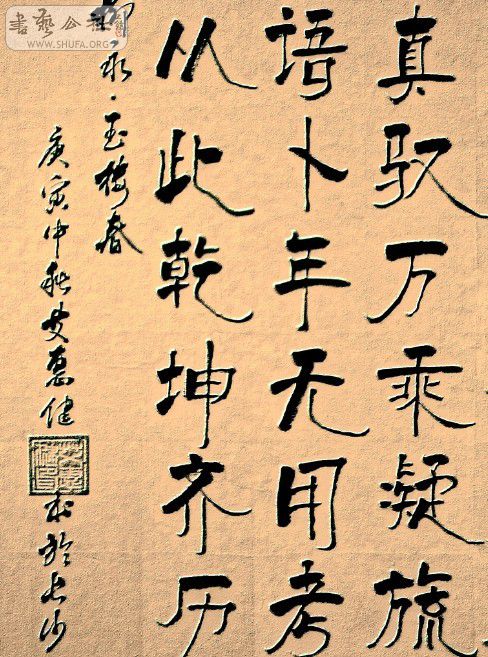 書藝公社
WWW.SHUFA.ORG
真驭万乘凝旒
语卜年无用考
从此乾坤齐历
柳永·玉楼春
庚寅中秋艾惠健书於长沙